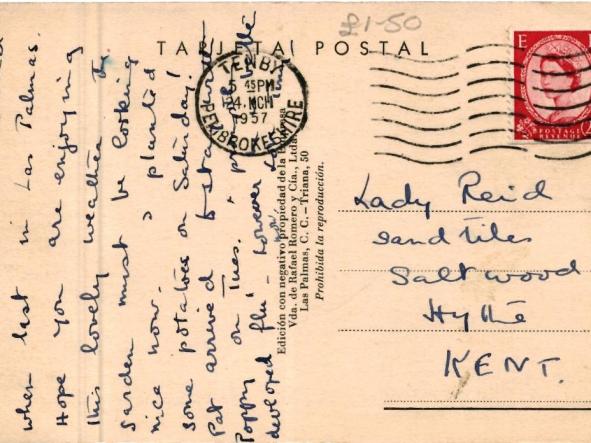 £1-50
TARJETA POSTAL
TENBY
5 45 PM
24 MCH
1957
PEMBROKESHIRE
E
POSTAGE
REVENUE
when last in Las Palmas.
Hope you are enjoying
this lovely weather Ty.
Garden must be looking
nice now. I planted
some potatoes on Saturday!
Pat arrived
Poppy on Tues.
developed flu - however
Edición con negativo propiedad de la
Vda. de Rafael Romero y Cía., Ltda.
Las Palmas, C. C. - Triana, 50
Prohibida la reproducción.
Lady Reid
Sandtiles
Saltwood
Hythe
KENT.